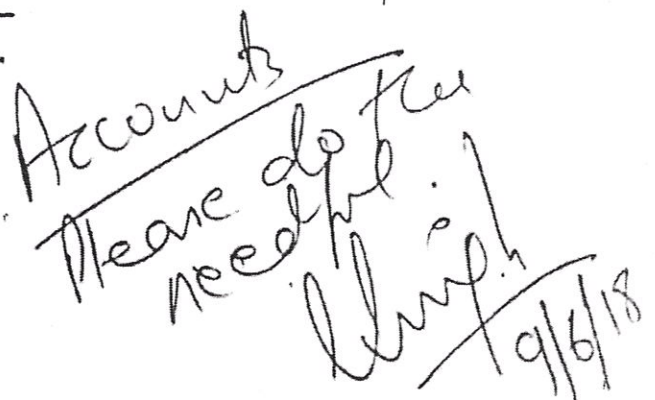 Accounts
Please do the
needful
9/6/18